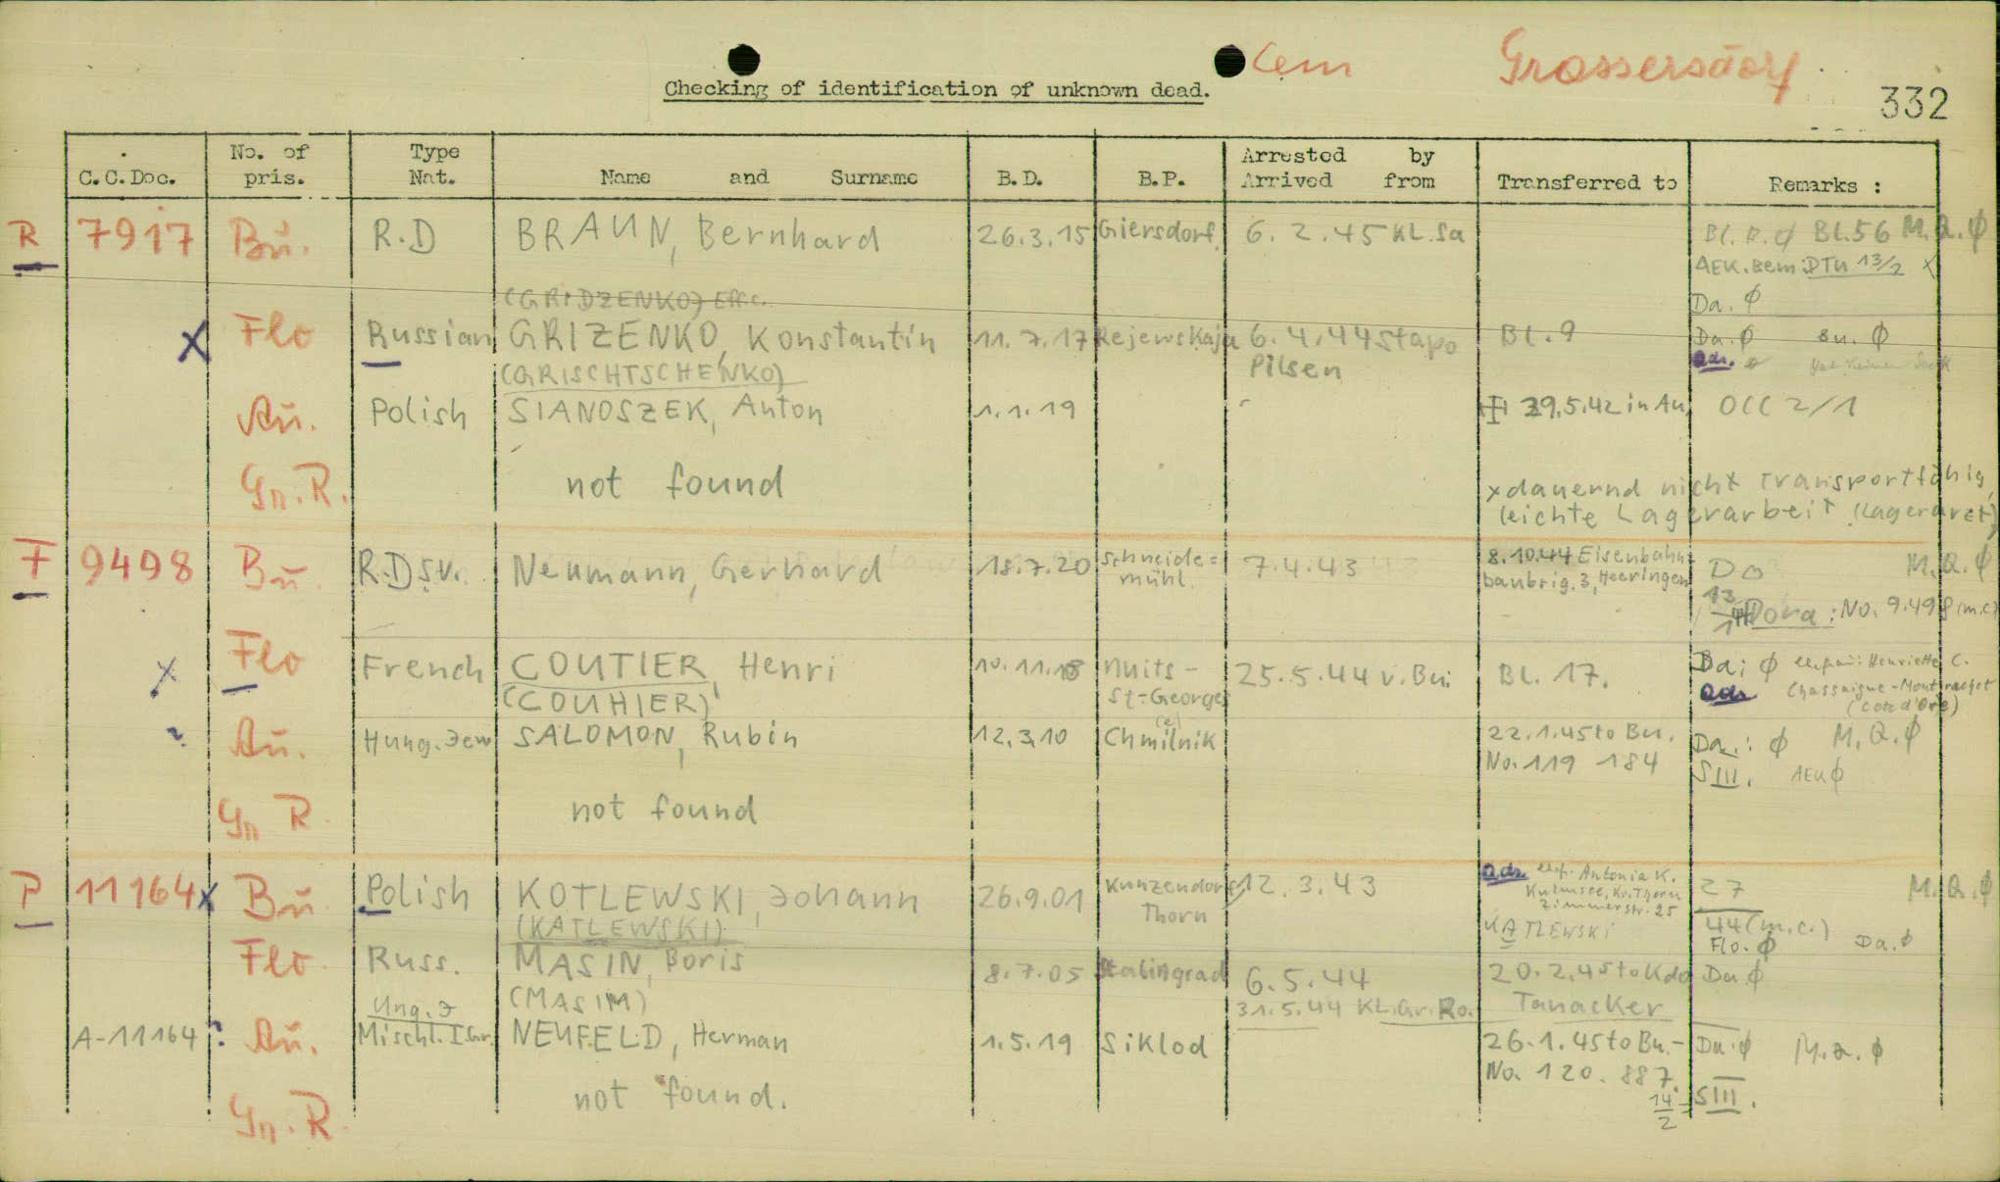 Cem Grossersdorf
332
Checking of identification of unknown dead.
C.C.Doc. No. of pris. Type Nat. Name and Surname B.D. B.P. Arrested by Arrived from Transferred to Remarks :
R 7917 Bu. R.D BRAUN, Bernhard 26.3.15 Giersdorf, 6. 2. 45 KL. Sa Bl. R. Ø Bl.56 M.Q.Ø
AEK. Bem: DTU 13/2 X
(GRIDZENKO) Da. Ø
X Flo Russian GRIZENKO, Konstantin 11. 7. 17 Rejewskaja 6. 4. 44 Stapo Bl. 9 Da. Ø Bu. Ø
(GRISCHTSCHENKO) Pilsen
Au. Polish SIANOSZEK, Anton 1.1.19 29.5.42 in Au, OCC 2/1
Gn.R. not found x dauernd nicht transportfähig,
leichte Lagerarbeit (Lagerarzt)
F 9498 Bu R.D S.V. Neumann, Gerhard 18.7.20 Schneide= mühl. 7.4.43 8.10.44 Eisenbahn= Do M.Q.Ø
baubrig. 3, Heeringen
Dora: No. 9.498 (m.c)
X Flo French COUTIER, Henri 10.11.18 Nuits- 25.5.44 v. Bu. Bl. 17. Da; Ø Henriette C.
(COUHIER) St-Georges Chassaigne-Montrachet
(cote d'Ore)
? Au. Hung. Jew SALOMON, Rubin 12.3.10 Chmilnik (e) 22.1.45 to Bu. Da.: Ø M.Q.Ø
No. 119 184 SIII. AEK Ø
Gn R not found
P 11164 x Bu Polish KOTLEWSKI, Johann 26.9.01 Kunzendorf 12. 3. 43 Antonia K. 27 M.Q.Ø
Thorn Kulmsee, Kr. Thorn
Zimmerstr. 25
(KATLEWSKI) KATLEWSKI 44 (m.c.)
Flo. Ø Da. Ø
Flo Russ. MASIN, Boris 8.7.05 Stalingrad 6.5.44 20.2.45 to Kdo Da Ø
(MASIM) 31.5.44 KL. Gr. Ro. Tanacker
Ung. J
A-11164 ? Au. Mischl. I Gr. NEUFELD, Herman 1.5.19 Siklod 26.1.45 to Bu.- Da. Ø M.Q. Ø
No. 120. 887. SIII.
14/2
Gn. R not found.